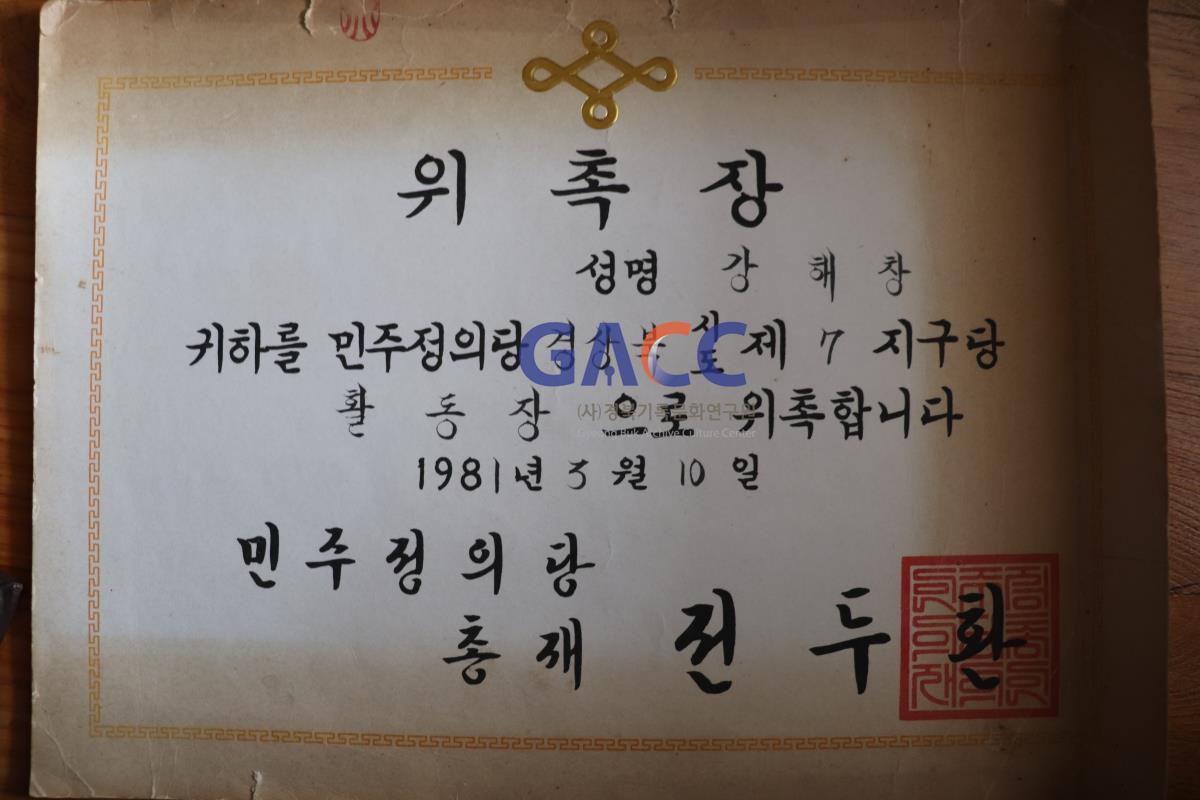 위촉장
성명 강해창
귀하를 민주정의당 경상북 시도 제 7 지구당
활동장 으로 위촉합니다
1981년 3월 10일
민주정의당
총재 전두환
GACC
(사)경북기록문화연구원
Gyeong Buk Archive Culture Center